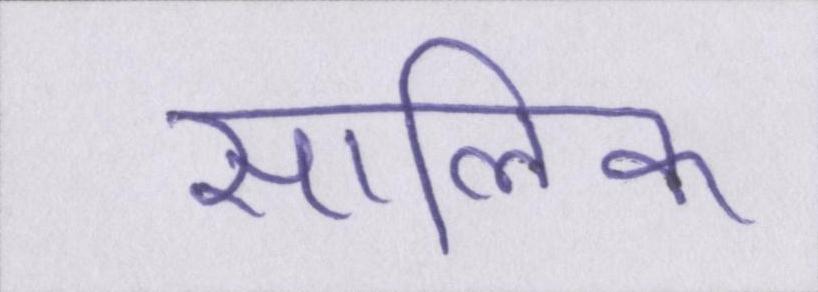 सालिक